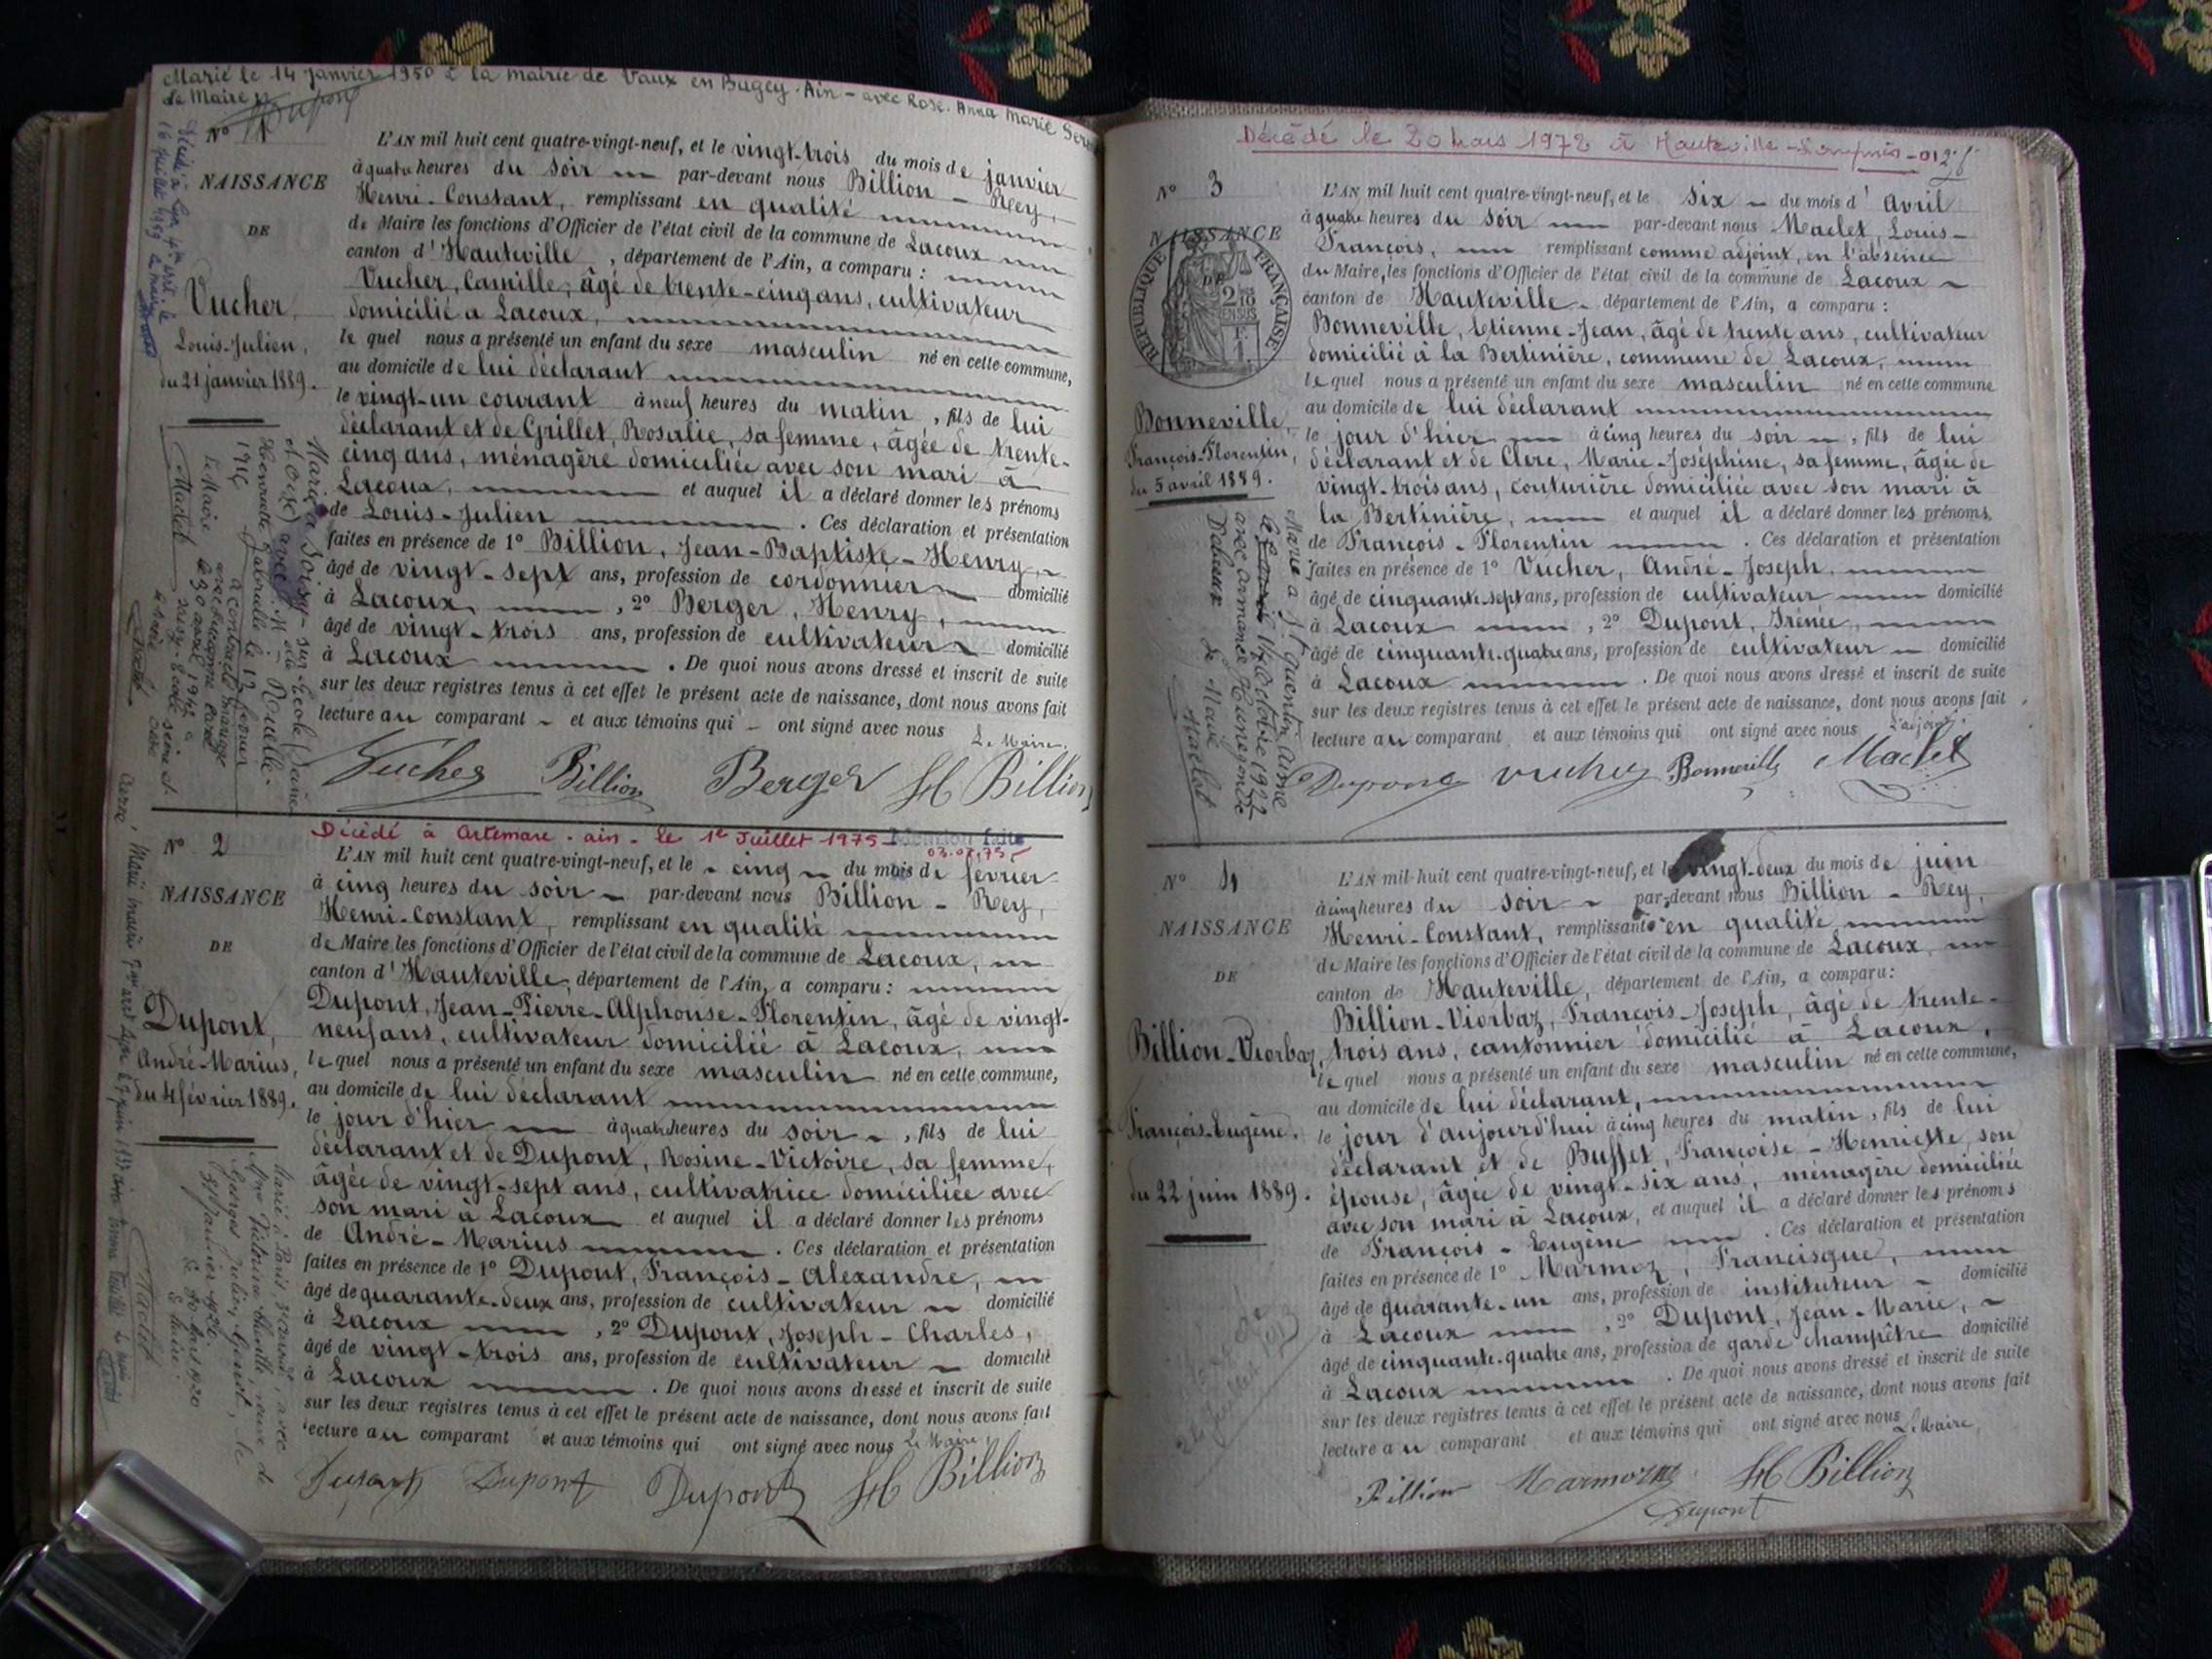 Marié le 14 Janvier 1950 à la mairie de Vaux en Bugey - Ain - avec Rose. Anna Marie
Le Maire Dupont
N° 1
NAISSANCE
DE
Vucher,
Louis-Julien,
du 21 janvier 1889.
L'AN mil huit cent quatre-vingt-neuf, et le vingt-trois du mois de janvier
à quatre heures du soir par-devant nous Billion - Rey,
Henri-Constant, remplissant en qualité
de Maire les fonctions d'Officier de l'état civil de la commune de Lacoux
canton d'Hauteville, département de l'Ain, a comparu :
Vucher, Camille, âgé de trente-cinq ans, cultivateur
domicilié à Lacoux,
lequel nous a présenté un enfant du sexe masculin né en cette commune,
au domicile de lui déclarant
le vingt-un courant à neuf heures du matin, fils de lui
déclarant et de Grillet, Rosalie, sa femme, âgée de trente-
cinq ans, ménagère domiciliée avec son mari à
Lacoux, et auquel il a déclaré donner les prénoms
de Louis-Julien . Ces déclaration et présentation
faites en présence de 1° Billion, Jean-Baptiste-Henry,
âgé de vingt-sept ans, profession de cordonnier domicilié
à Lacoux, , 2° Berger, Henry,
âgé de vingt-trois ans, profession de cultivateur domicilié
à Lacoux . De quoi nous avons dressé et inscrit de suite
sur les deux registres tenus à cet effet le présent acte de naissance, dont nous avons fait
lecture au comparant et aux témoins qui ont signé avec nous
Le Maire,
Vucher Billion Berger H Billion
N° 2
NAISSANCE
DE
Dupont,
André-Marius,
du 4 février 1889.
Décédé à Artemare - ain - le 1er Juillet 1975 Mention faite
03.07.75
L'AN mil huit cent quatre-vingt-neuf, et le cinq du mois de février
à cinq heures du soir par-devant nous Billion - Rey,
Henri-Constant, remplissant en qualité
de Maire les fonctions d'Officier de l'état civil de la commune de Lacoux,
canton d'Hauteville, département de l'Ain, a comparu :
Dupont, Jean-Pierre-Alphonse-Florentin, âgé de vingt-
neuf ans, cultivateur domicilié à Lacoux,
lequel nous a présenté un enfant du sexe masculin né en cette commune,
au domicile de lui déclarant
le jour d'hier à quatre heures du soir, fils de lui
déclarant et de Dupont, Rosine-Victoire, sa femme,
âgée de vingt-sept ans, cultivatrice domiciliée avec
son mari à Lacoux et auquel il a déclaré donner les prénoms
de André-Marius . Ces déclaration et présentation
faites en présence de 1° Dupont, François-Alexandre,
âgé de quarante-deux ans, profession de cultivateur domicilié
à Lacoux , 2° Dupont, Joseph-Charles,
âgé de vingt-trois ans, profession de cultivateur domicilié
à Lacoux . De quoi nous avons dressé et inscrit de suite
sur les deux registres tenus à cet effet le présent acte de naissance, dont nous avons fait
lecture au comparant et aux témoins qui ont signé avec nous Le Maire,
Dupont Dupont Dupont H Billion
Décédé le 20 Mars 1972 à Hauteville
N° 3
NAISSANCE
DE
RÉPUBLIQUE FRANÇAISE
Bonneville,
François-Florentin,
du 5 avril 1889.
L'AN mil huit cent quatre-vingt-neuf, et le six du mois d'avril
à quatre heures du soir par-devant nous Maclet, Louis-
François, remplissant comme adjoint, en l'absence
du Maire, les fonctions d'Officier de l'état civil de la commune de Lacoux
canton de Hauteville, département de l'Ain, a comparu :
Bonneville, Etienne-Jean, âgé de trente ans, cultivateur
domicilié à la Bertinière, commune de Lacoux,
lequel nous a présenté un enfant du sexe masculin né en cette commune
au domicile de lui déclarant
le jour d'hier à cinq heures du soir, fils de lui
déclarant et de Clerc, Marie-Joséphine, sa femme, âgée de
vingt-trois ans, couturière domiciliée avec son mari à
la Bertinière, et auquel il a déclaré donner les prénoms
de François-Florentin . Ces déclaration et présentation
faites en présence de 1° Vucher, André-Joseph,
âgé de cinquante-sept ans, profession de cultivateur domicilié
à Lacoux , 2° Dupont, Irénée,
âgé de cinquante-quatre ans, profession de cultivateur domicilié
à Lacoux . De quoi nous avons dressé et inscrit de suite
sur les deux registres tenus à cet effet le présent acte de naissance, dont nous avons fait
lecture au comparant et aux témoins qui ont signé avec nous L'adjoint
Dupont Vucher Bonneville Maclet
N° 4
NAISSANCE
DE
Billion-Viorbaz,
François-Eugène,
du 22 juin 1889.
L'AN mil huit cent quatre-vingt-neuf, et le vingt-deux du mois de juin
à cinq heures du soir par-devant nous Billion - Rey,
Henri-Constant, remplissant en qualité
de Maire les fonctions d'Officier de l'état civil de la commune de Lacoux,
canton de Hauteville, département de l'Ain, a comparu :
Billion-Viorbaz, François-Joseph, âgé de trente-
trois ans, cantonnier domicilié à Lacoux,
lequel nous a présenté un enfant du sexe masculin né en cette commune,
au domicile de lui déclarant,
le jour d'aujourd'hui à cinq heures du matin, fils de lui
déclarant et de Buffet, Françoise-Henriette, son
épouse, âgée de vingt-six ans, ménagère domiciliée
avec son mari à Lacoux, et auquel il a déclaré donner les prénoms
de François-Eugène . Ces déclaration et présentation
faites en présence de 1° Marmoz, Francisque,
âgé de quarante-un ans, profession de instituteur domicilié
à Lacoux , 2° Dupont, Jean-Marie,
âgé de cinquante-quatre ans, profession de garde champêtre domicilié
à Lacoux . De quoi nous avons dressé et inscrit de suite
sur les deux registres tenus à cet effet le présent acte de naissance, dont nous avons fait
lecture au comparant et aux témoins qui ont signé avec nous Le Maire,
Billion Marmoz H Billion
Dupont